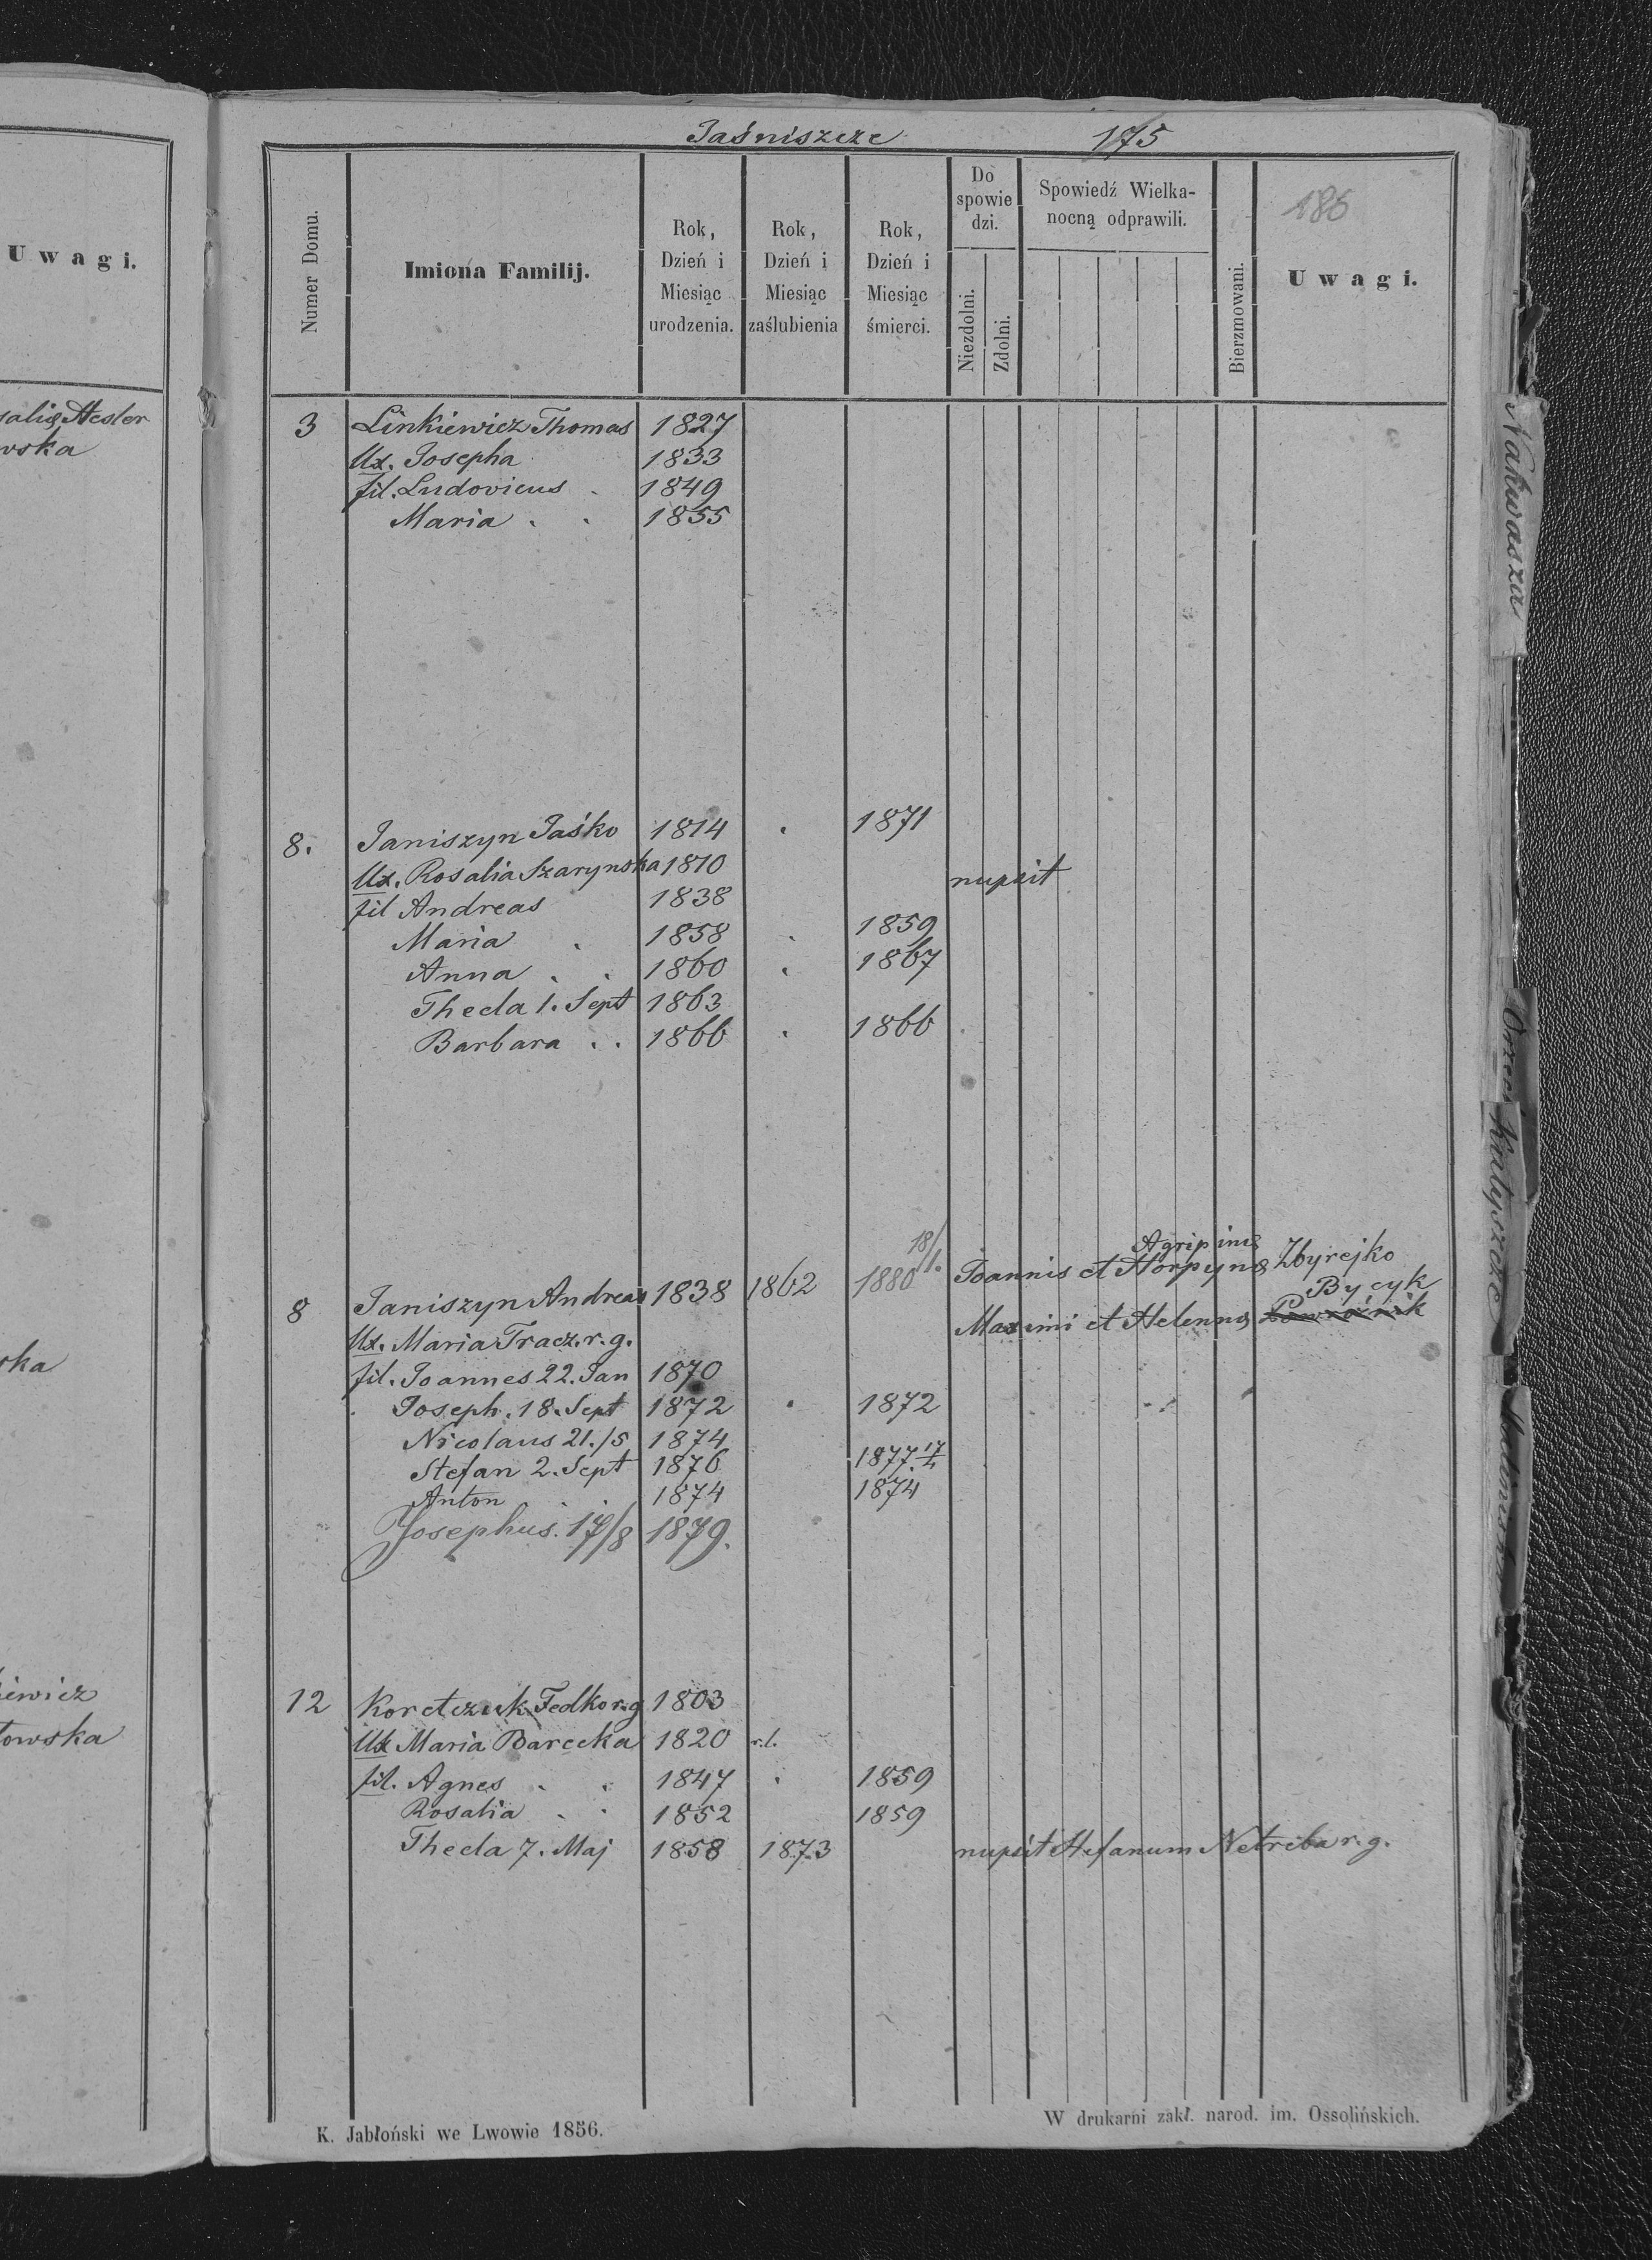 Jaśniszcze 175
186
Numer Domu.
Imiona Familij.
Rok, Dzień i Miesiąc urodzenia.
Rok, Dzień i Miesiąc zaślubienia
Rok, Dzień i Miesiąc śmierci.
Do spowie dzi.
Niezdolni.
Zdolni.
Spowiedź Wielka-
nocną odprawili.
Bierzmowani.
Uwagi.
3 Linkiewicz Thomas 1827
Ux. Josepha 1833
fil. Ludovicus 1849
Maria 1855
8. Janiszyn Jaśko 1814 1871
Ux. Rosalia Szarynska 1810
fil Andreas 1838 nupsit
Maria 1858 1859
Anna 1860 1867
Thecla 1. Sept 1863
Barbara 1866 1866
8 Janiszyn Andreas 1838 1862 1880 18/1. Joannis et Horpynę Agripinę Zbyrejko
Ux. Maria Tracz. r. g. Maximi et Helennę Powroźnik Bycyk
fil. Joannes 22. Jan 1870
Joseph. 18. Sept 1872 1872
Nicolaus 21./5 1874
Stefan 2. Sept 1876 1877
Anton 1874 1874
Josephus. 17/8 1879.
12 Koretczuk Fedko r. g 1803
Ux Maria Barecka 1820 r. l.
fil. Agnes 1847 1859
Rosalia 1852 1859
Thecla 7. Maj 1858 1873 nupsit Stefanum Netreba r. g.
K. Jabłoński we Lwowie 1856.
W drukarni zakł. narod. im. Ossolińskich.
Uwagi.
Hesler
wska
ska
iewicz
towska
Nakwasza